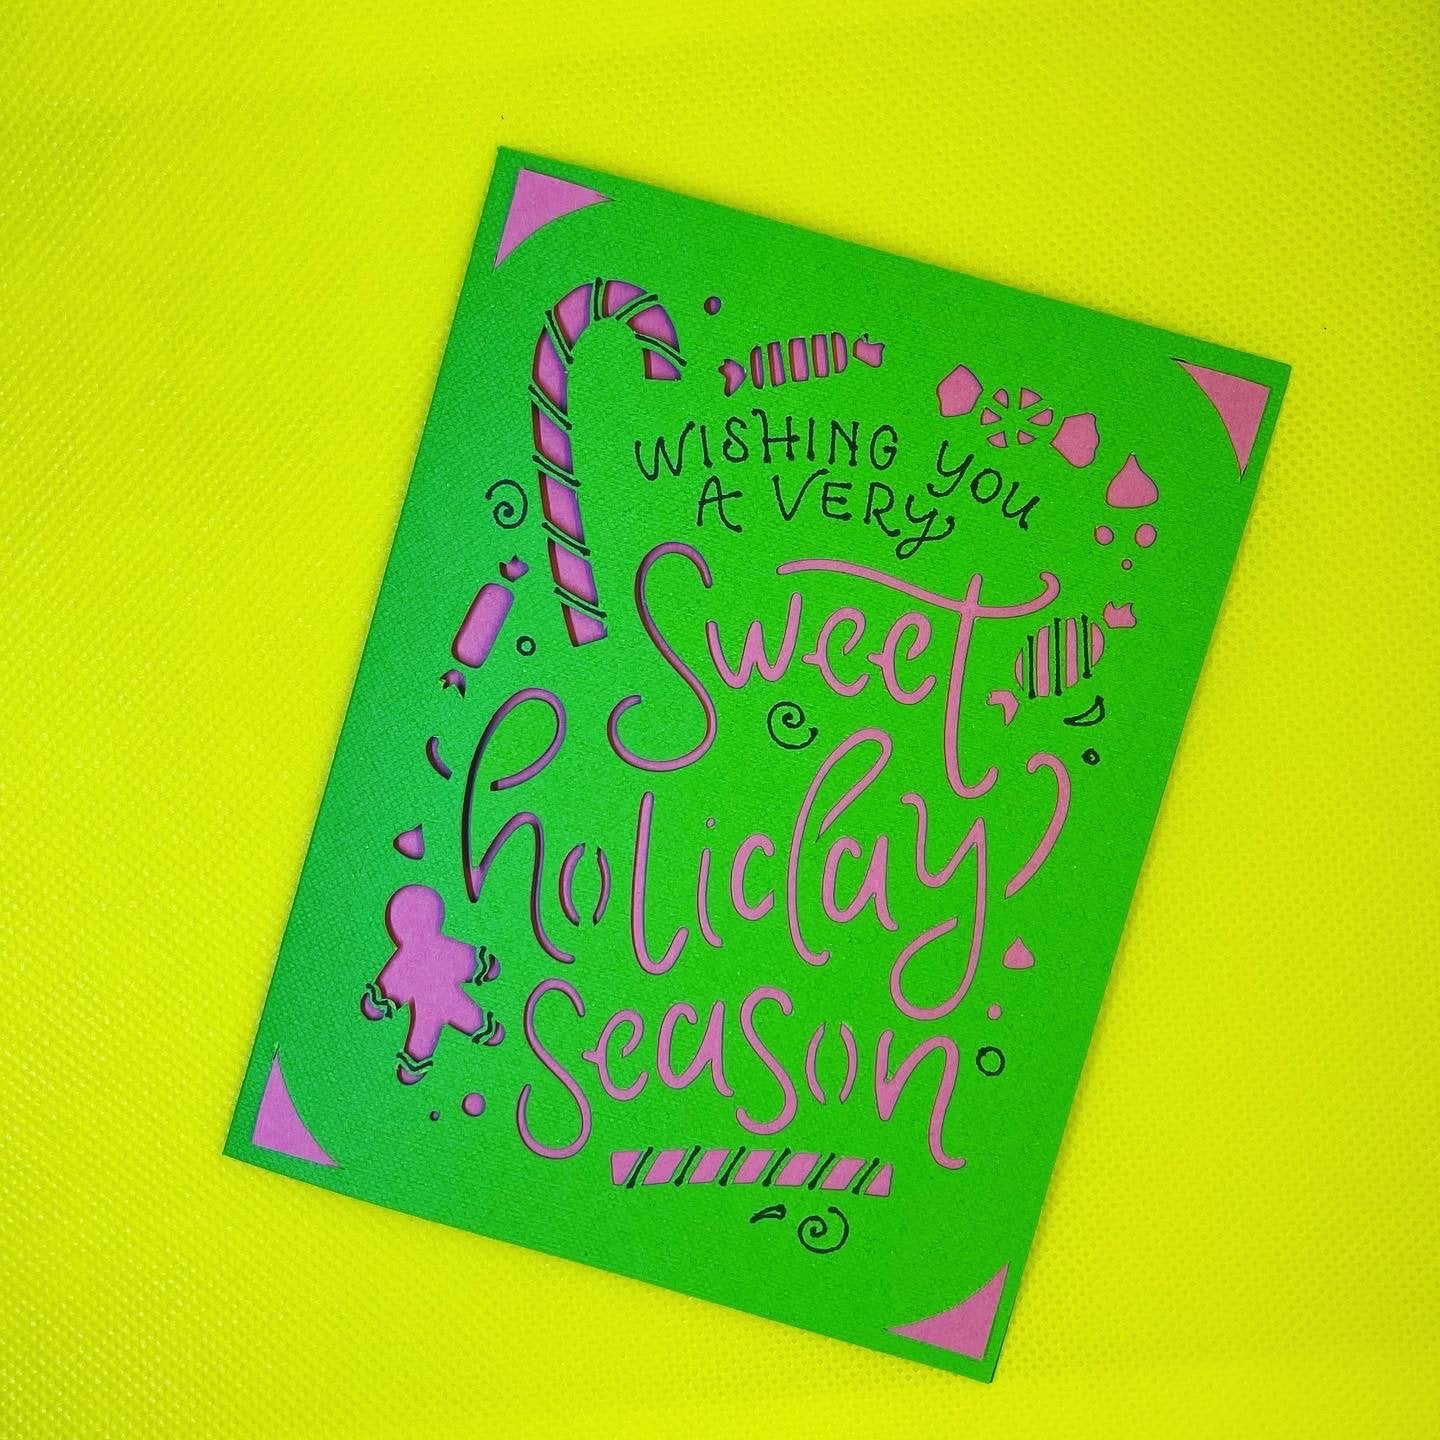 WISHING YOU
A VERY
Sweet
holiday
season